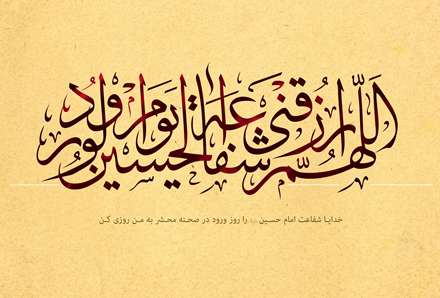 اللّهمّ ارزقني شفاعة الحسين يوم الورود
خدایا شفاعت امام حسین را روز ورود در صحنه محشر به من روزی کن